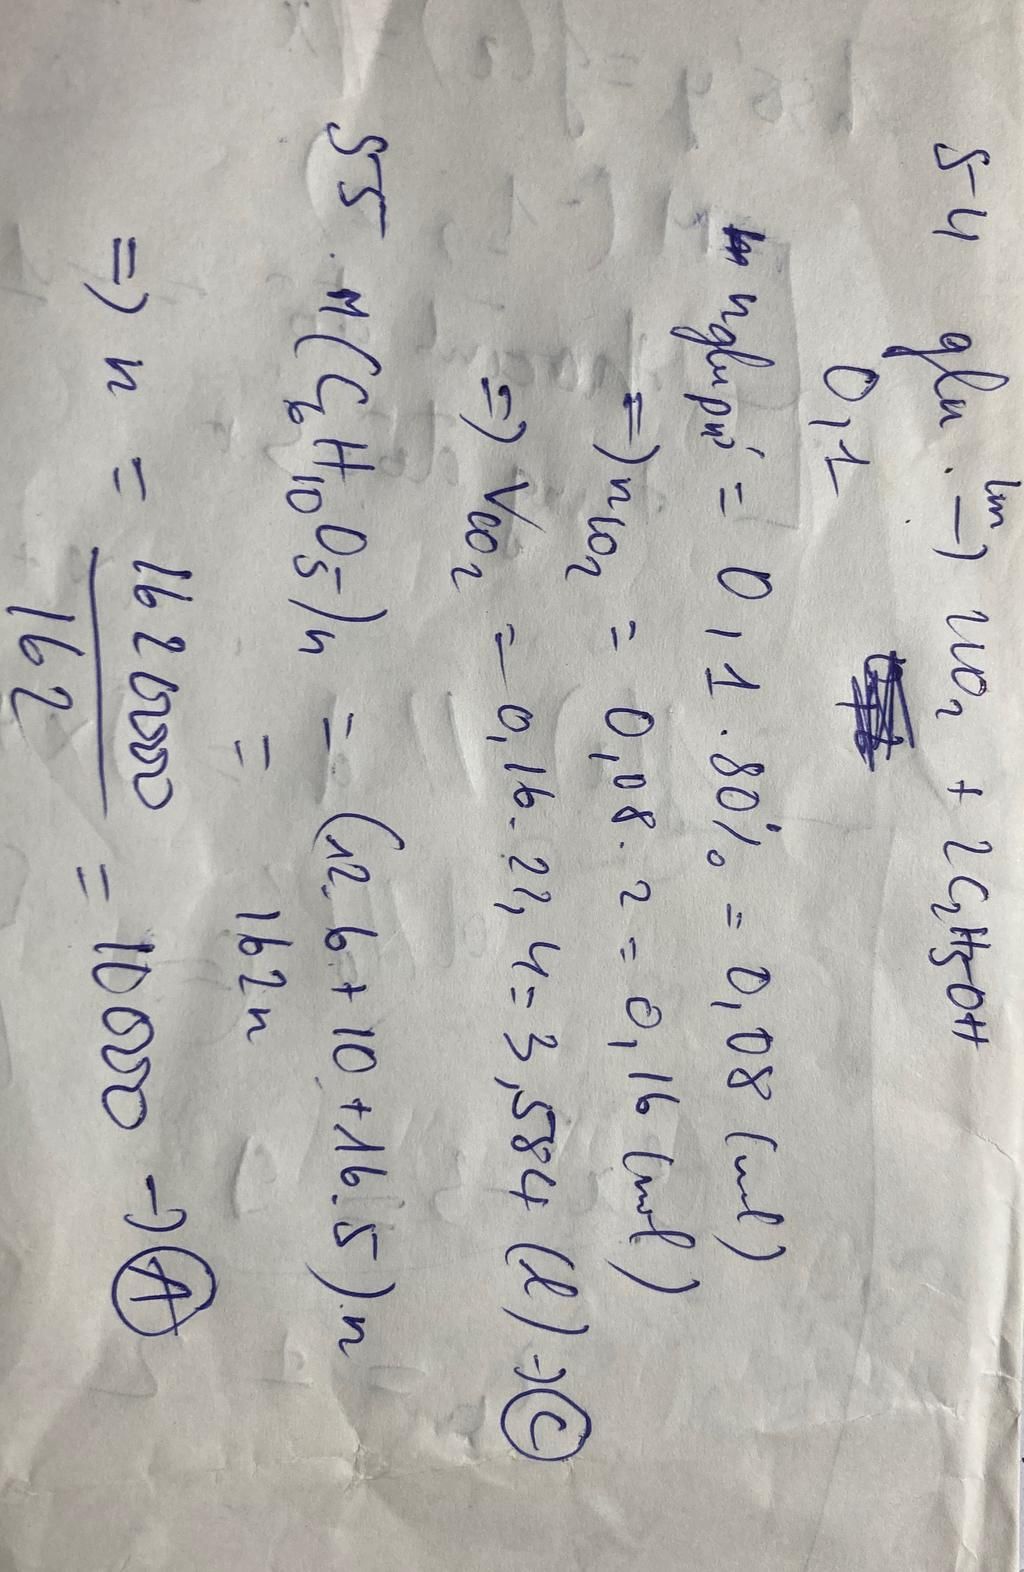 54 glu. lm→ 2CO2 + 2C2H5OH
0,1
n glu pứ = 0,1.80% = 0,08 (mol)
=) nCO2 = 0,08.2 = 0,16 (mol)
=) VCO2 = 0,16.22,4 = 3,584 (l) → C
55. M(C6H10O5)n = (12.6+10+16.5).n
= 162n
=) n = 1620000/162 = 10000 → A